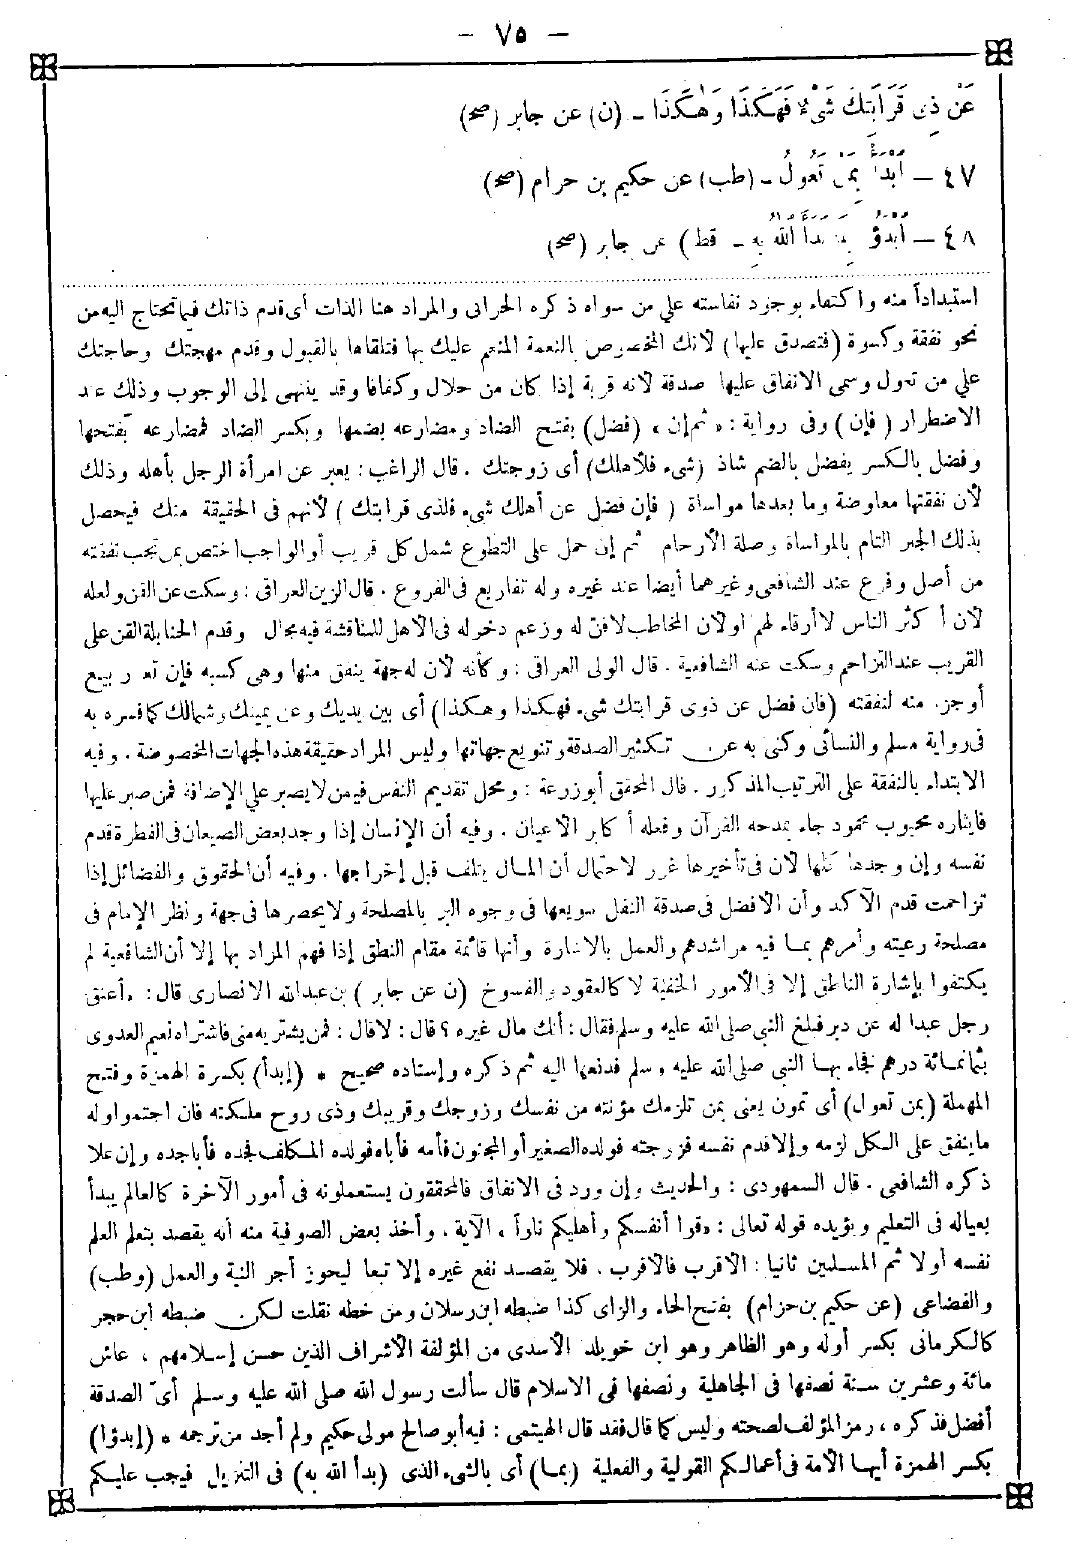 — ٧٥ —
عَنْ ذِى قَرَابَتِكَ شَىْءٌ فَهَكَذَا وَهٰكَذَا - (ن) عن جابر (صح)
٤٧ — اُبْدَأْ بِمَنْ تَعُولُ - (طب) عن حكيم بن حزام (صح)
٤٨ — اُبْدَؤُ بِمَا بَدَأَ اللهُ بِهِ - قط) عن جابر (صح)
استبداداً منه واكتفاء بوجود نفاسته علي من سواه ذكره الحرانى والمراد هنا الذات أى قدم ذاتك فيما تحتاج اليه من
نحو نفقة وكسوة (فتصدق عليها) لانك المخصوص بالنعمة المنعم عليك بها فتلقاها بالقبول وقدم مهجتك وحاجتك
علي من تعول وسمى الانفاق عليها صدقة لانه قربة إذا كان من حلال وكفافا وقد ينتهى إلى الوجوب وذلك عند
الاضطرار (فإن) وفى رواية : « ثم إن » (فضل) بفتح الضاد ومضارعه بضمها وبكسر الضاد فمضارعه بفتحها
وفضل بالكسر يفضل بالضم شاذ (شىء فلأهلك) أى زوجتك . قال الراغب : يعبر عن امرأة الرجل بأهله وذلك
لأن نفقتها معاوضة وما بعدها مواساة (فإن فضل عن أهلك شىء فلذى قرابتك) لأنهم فى الحقيقة منك فيحصل
بذلك الجبر التام بالمواساة وصلة الأرحام ثم إن حمل على التطوع شمل كل قريب أو الواجب اختص بمن تجب نفقته
من أصل وفرع عند الشافعى وغيرهما أيضا عند غيره وله تفاريع فى الفروع . قال الزين العراقى : وسكت عن القن ولعله
لان أكثر الناس لا أرقاء لهم او لان المخاطب لا قن له وزعم دخوله فى الاهل للمناقشة فيه مجال وقدم الحنابلة القن على
القريب عند التزاحم وسكت عنه الشافعية . قال الولى العراقى : وكأنه لان له جهة ينفق منها وهى كسبه فإن تعذر بيع
أو جزء منه لنفقته (فان فضل عن ذوى قرابتك شىء فهكذا وهكذا) أى بين يديك وعن يمينك وشمالك كما فسره به
فى رواية مسلم والنسائى وكنى به عن تكثير الصدقة وتنويع جهاتها وليس المراد حقيقة هذه الجهات المخصوصة . وفيه
الابتداء بالنفقة على الترتيب المذكور . قال المحقق أبو زرعة : ومحل تقديم النفس فيمن لا يصبر علي الإضافة فمن صبر عليها
فإيثاره محبوب محمود جاء بمدحه القرآن وفعله أكابر الاعيان . وفيه أن الإنسان إذا وجد بعض الصيعان فى الفطرة قدم
نفسه وإن وجدها كلها لان فى تأخيرها غرر لاحتمال أن المال يتلف قبل إخراجها . وفيه أن الحقوق والفضائل إذا
تزاحمت قدم الآكد وأن الافضل فى صدقة النفل تنويعها فى وجوه البر بالمصلحة ولا يحصرها فى جهة ونظر الإمام فى
مصلحة رعيته وأمرهم بما فيه مراشدهم والعمل بالاشارة وأنها قائمة مقام النطق إذا فهم المراد بها إلا أن الشافعية لم
يكتفوا بإشارة الناطق إلا فى الأمور الخفية لا كالعقود والفسوخ (ن عن جابر) بن عبدالله الانصارى قال : «أعتق
رجل عبدا له عن دبر فبلغ النبى صلى الله عليه وسلم فقال : ألك مال غيره ؟ قال : لا قال : فمن يشتريه منى فاشتراه نعيم العدوى
بثمانمائة درهم فجاء بها النبي صلى الله عليه وسلم فدفعها اليه ثم ذكره وإسناده صحيح * (إبدأ) بكسرة الهمزة وفتح
المهملة (بمن تعول) أى تمون يعنى بمن تلزمك مؤنته من نفسك وزوجك وقريبك وذى روح ملكته فان اجتمعوا وله
ما ينفق على الكل لزمه وإلا قدم نفسه فزوجته فولده الصغير أو المجنون فأمه فأباه فولده المكلف فجده فأبا جده وإن علا
ذكره الشافعى . قال السمهودى : والحديث وإن ورد فى الانفاق فالمحققون يستعملونه فى أمور الآخرة كالعالم يبدأ
بعياله فى التعليم ويؤيده قوله تعالى : «قوا أنفسكم وأهليكم ناراً» الآية . وأخذ بعض الصوفية منه أنه يقصد بتعلم العلم
نفسه أولا ثم المسلمين ثانيا : الاقرب فالاقرب . فلا يقصد نفع غيره إلا تبعا ليحوز أجر النية والعمل (وطب)
والقضاعى (عن حكيم بن حزام) بفتح الحاء والزاى كذا ضبطه ابن رسلان ومن خطه نقلت لكن ضبطه ابن حجر
كالكرمانى بكسر أوله وهو الظاهر وهو ابن خويلد الأسدى من المؤلفة الأشراف الذين حسن إسلامهم ، عاش
مائة وعشرين سنة نصفها فى الجاهلية ونصفها فى الاسلام قال سألت رسول الله صلى الله عليه وسلم أىّ الصدقة
أفضل فذكره ، رمز المؤلف لصحته وليس كما قال فقد قال الهيتمى : فيه أبو صالح مولى حكيم ولم أجد من ترجمه * (إبدؤا)
بكسر الهمزة أيها الأمة فى أعمالكم القولية والفعلية (بما) أى بالشىء الذى (بدأ الله به) فى التنزيل فيجب عليكم